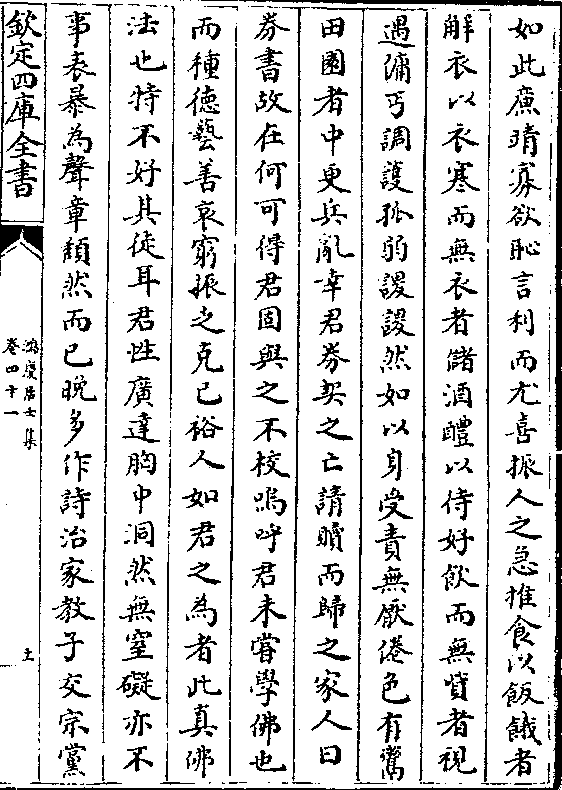 如此廉靖寡欲恥言利而尤喜振人之急推食以飯餓者
解衣以衣寒而無衣者儲酒醴以待好飲而無貲者視
遇傭丐調護孤弱謖謖然如以身受責無厭倦色有鬻
田園者中更兵亂幸君券契之亡請贖而歸之家人曰
券書故在何可得君固與之不校嗚呼君未嘗學佛也
而種德藝善哀窮振乏克己裕人如君之為者此真佛
法也特不好其徒耳君性廣達胸中洞然無窒礙亦不
事表暴為聲章頽然而已晚多作詩治家教子交宗黨
欽定四庫全書
鴻慶居士集
卷四十一